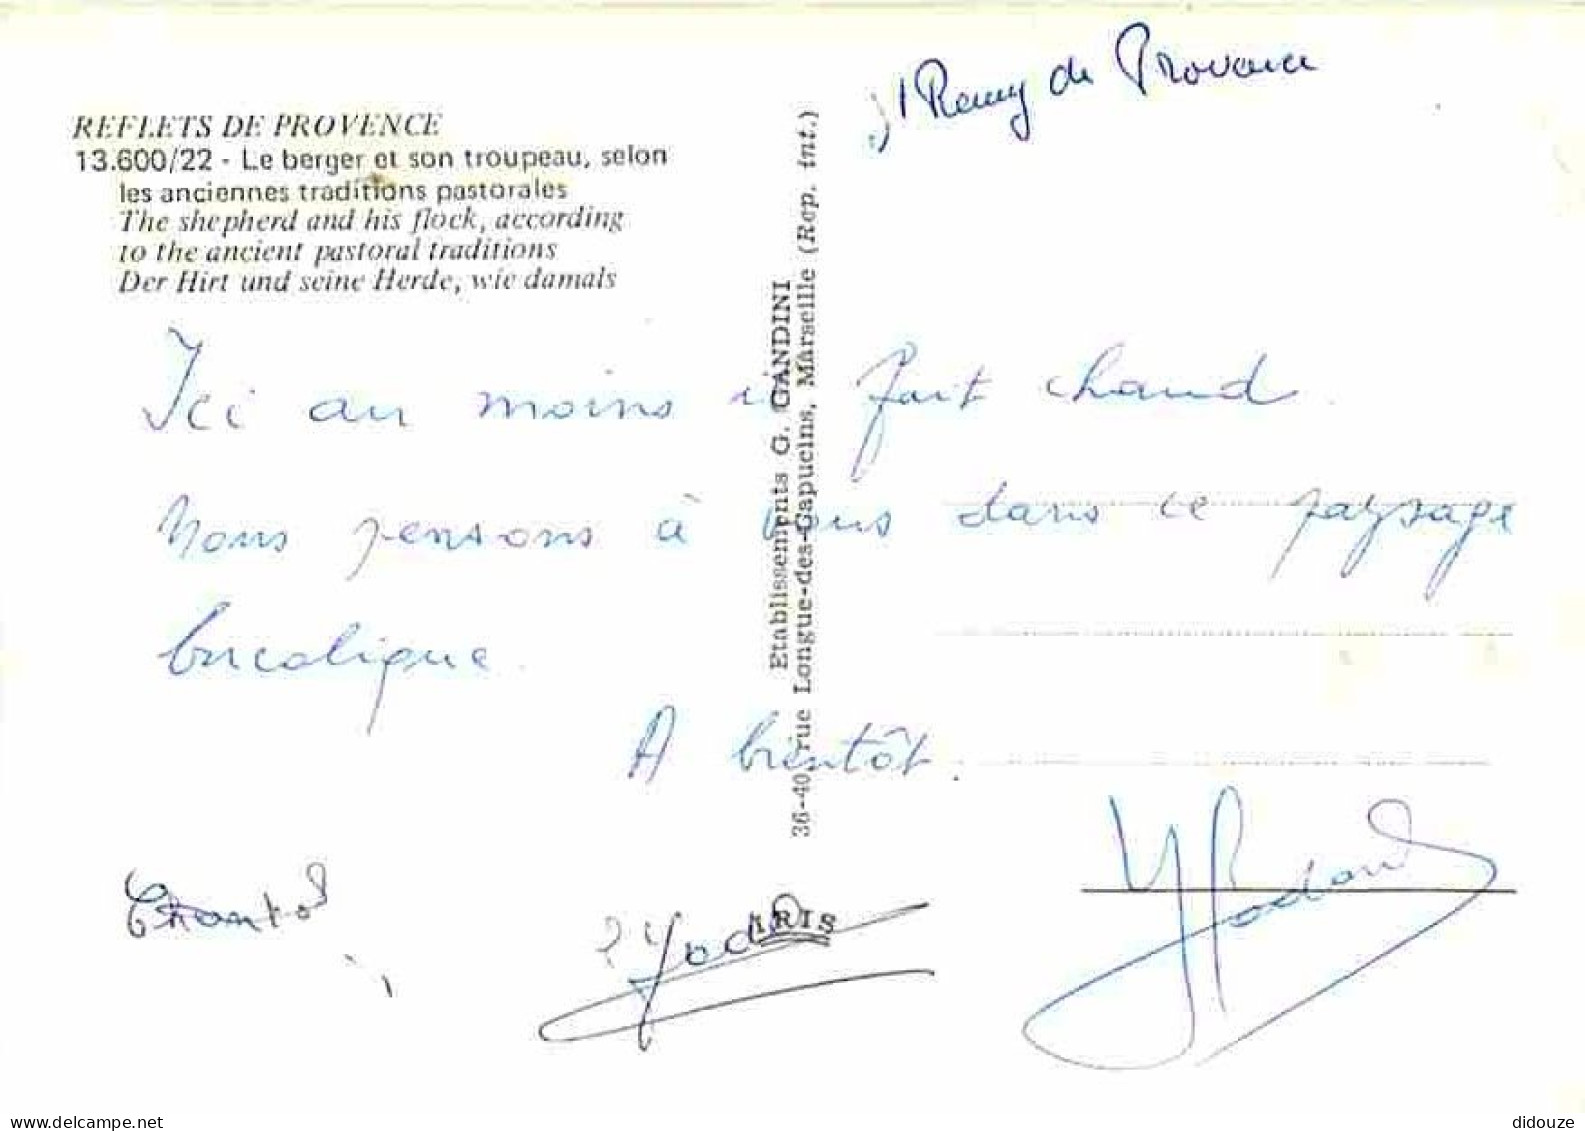 St Remy de Provence
REFLETS DE PROVENCE
13.600/22 - Le berger et son troupeau, selon
les anciennes traditions pastorales
The shepherd and his flock, according
to the ancient pastoral traditions
Der Hirt und seine Herde, wie damals
Etablissements G. GANDINI
36-40, rue Longue-des-Capucins, Marseille (Rep. int.)
Ici au moins il fait chaud.
Nous pensons à vous dans ce paysage
bucolique.
A bientôt.
Chantal
IRIS
www.delcampe.net
didouze